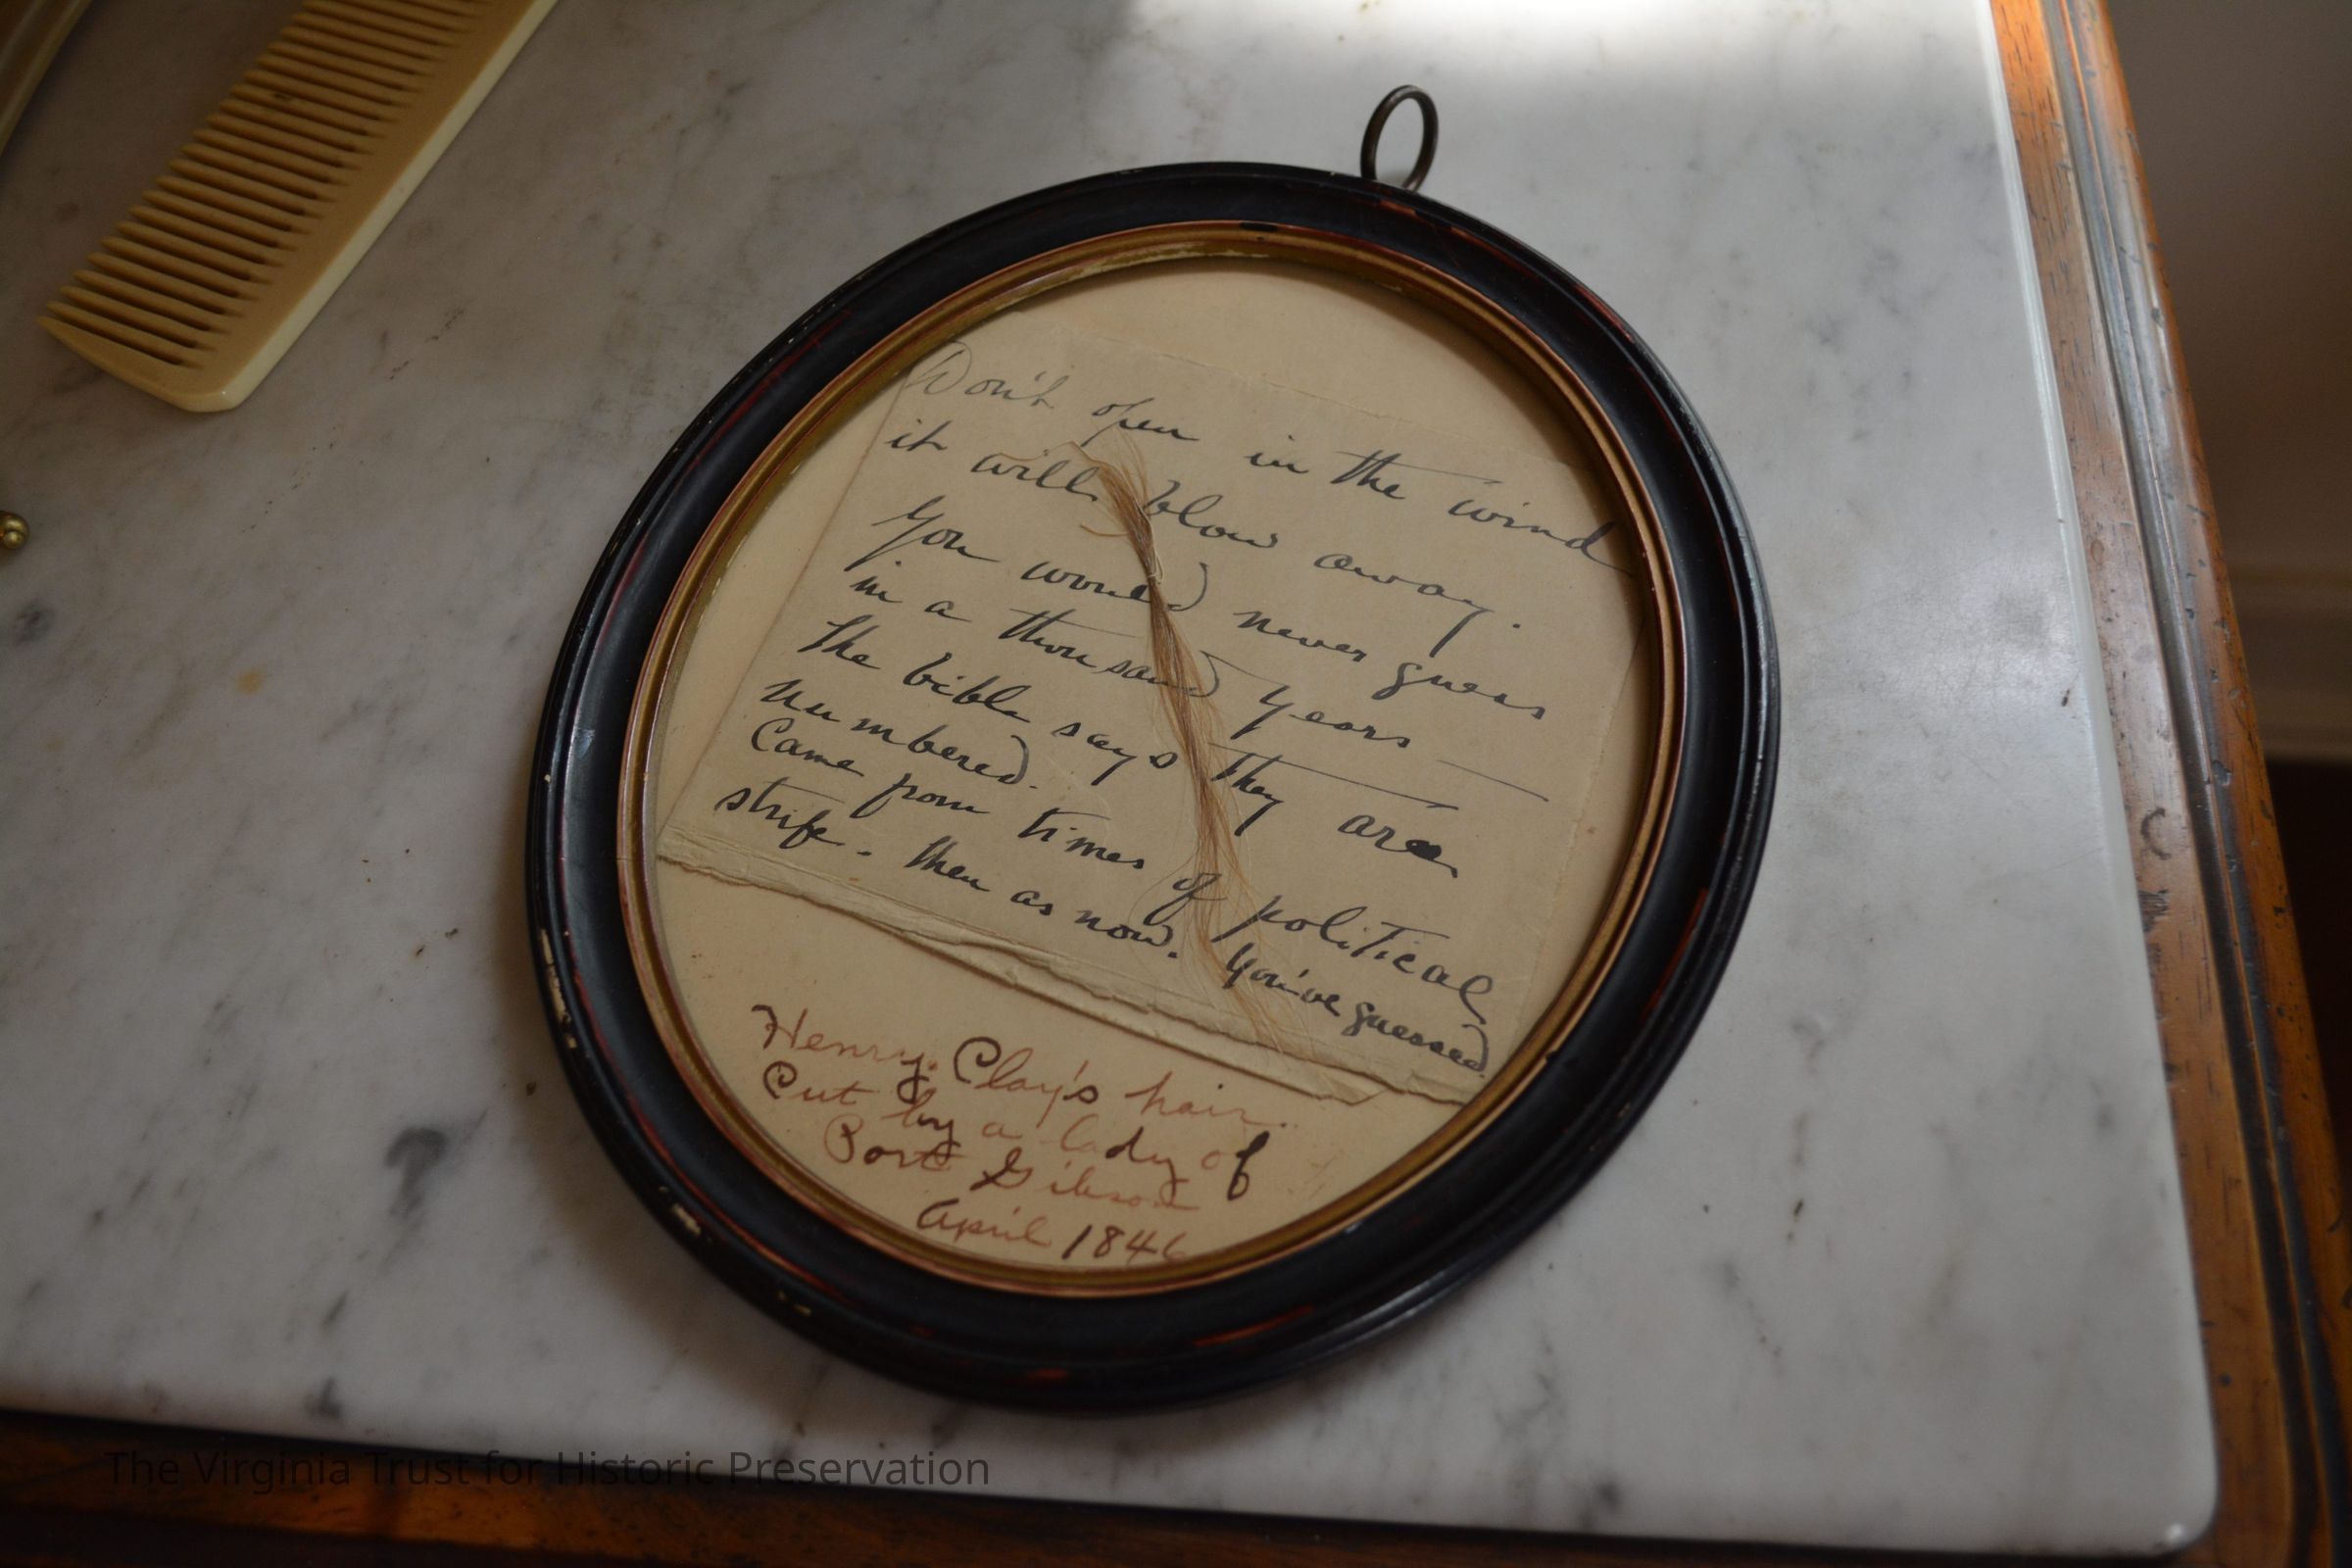 Don't open in the wind
it will blow away.
You would never guess
in a thousand years —
The bible says they are
numbered.
Came from times of political
strife. then as now. You've guessed
Henry Clay's hair.
Cut by a lady of
Port Gibson
April 1846
The Virginia Trust for Historic Preservation